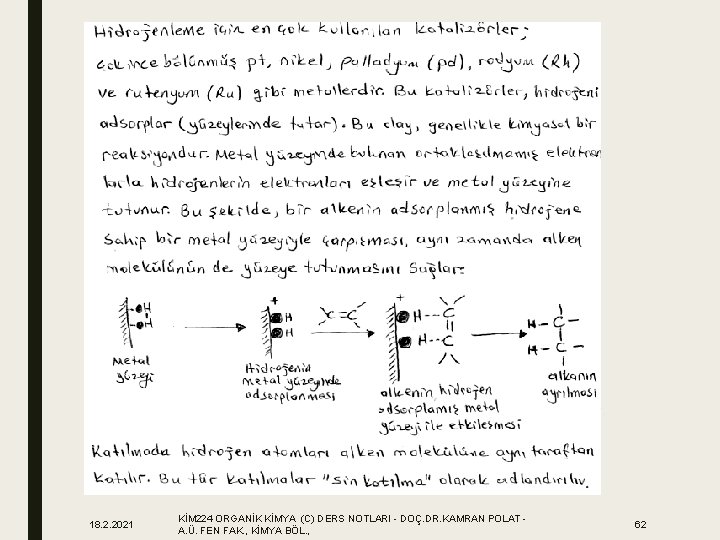 Hidrojenleme için en çok kullanılan katalizörler;
çok ince bölünmüş pt, nikel, palladyum (pd), rodyum (Rh)
ve rutenyum (Ru) gibi metallerdir. Bu katalizörler, hidrojeni
adsorplar (yüzeylerinde tutar). Bu olay, genellikle kimyasal bir
reaksiyondur. Metal yüzeyinde bulunan ortaklaşılmamış elektron
larla hidrojenlerin elektronları eşleşir ve metal yüzeyine
tutunur. Bu şekilde, bir alkenin adsorplanmış hidrojene
sahip bir metal yüzeyiyle çarpışması, aynı zamanda alken
molekülünün de yüzeye tutunmasını sağlar.
H
H
Metal
yüzeyi
+
H
H
Hidrojenin
metal yüzeyinde
adsorplanması
C=C
+
H-C
H-C
alkenin, hidrojen
adsorplamış metal
yüzeyi ile etkileşmesi
H-C-
H-C-
alkanın
ayrılması
Katılmada hidrojen atomları alken molekülüne aynı taraftan
katılır. Bu tür katılmalar "sin katılma" olarak adlandırılır.
18.2.2021
KİM224 ORGANİK KİMYA (C) DERS NOTLARI - DOÇ.DR.KAMRAN POLAT -
A.Ü. FEN FAK., KİMYA BÖL.,
62